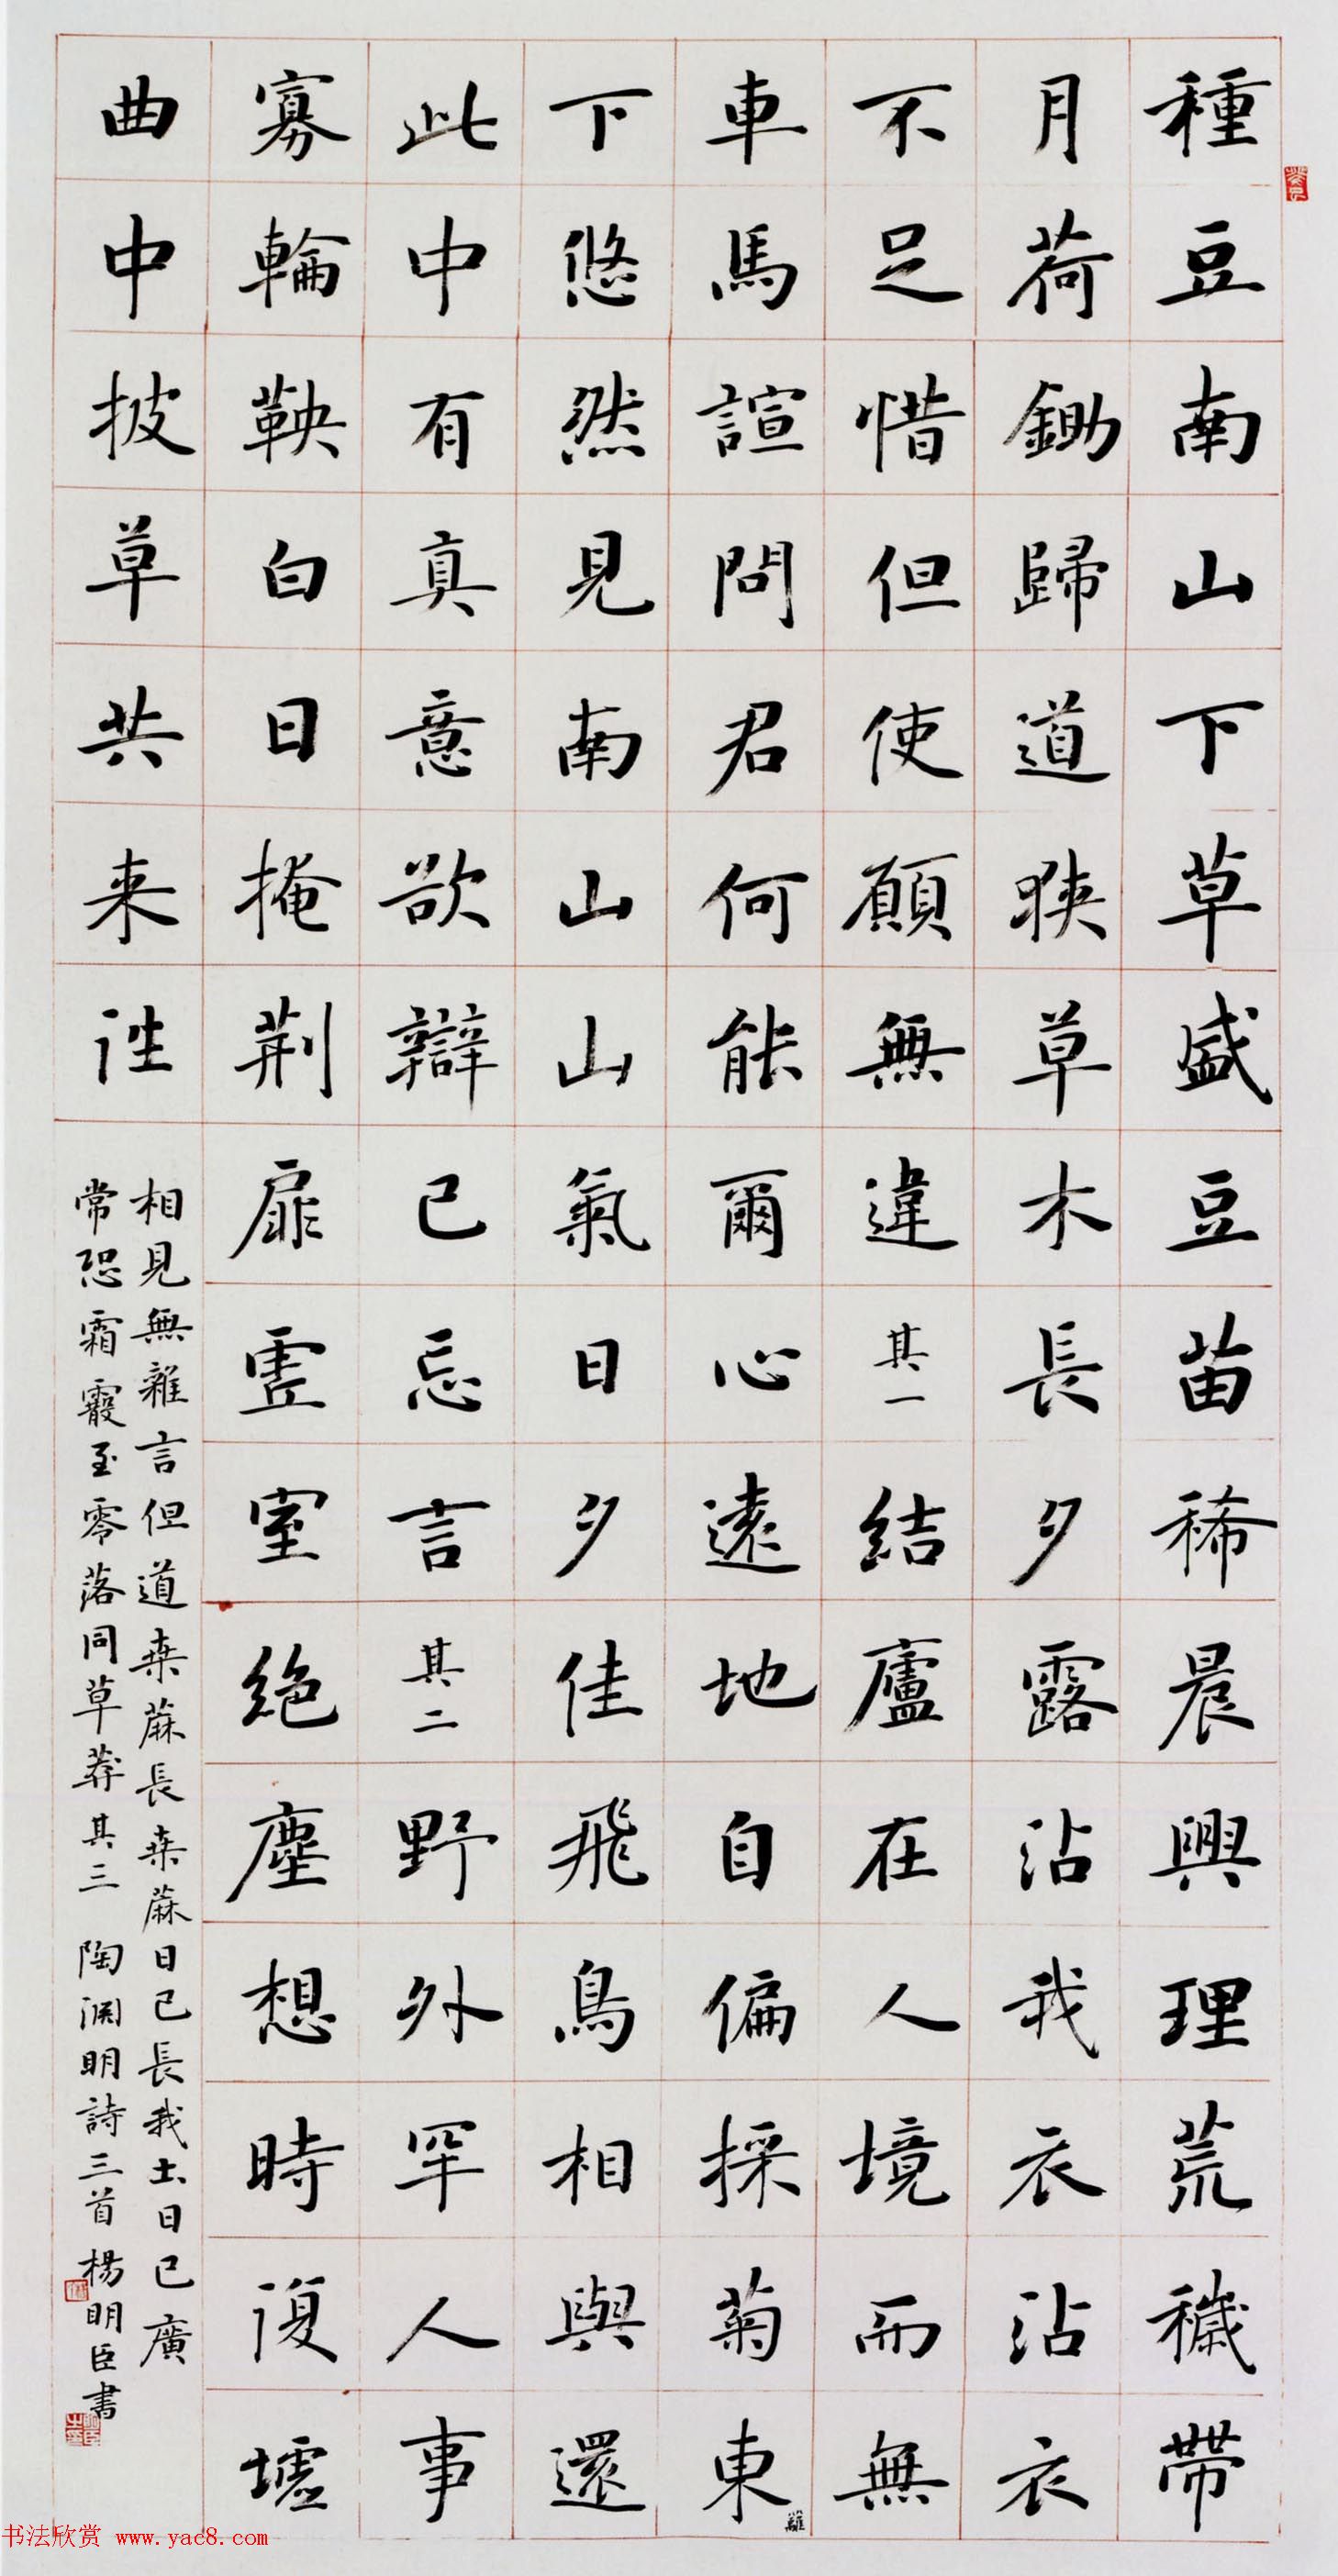 種豆南山下草盛豆苗稀晨興理荒穢帶
月荷鋤歸道狹草木長夕露沾我衣沾衣
不足惜但使願無違其一結廬在人境而無
車馬諠問君何能爾心遠地自偏採菊東
籬
下悠然見南山山氣日夕佳飛鳥相與還
此中有真意欲辯已忘言其二野外罕人事
寡輪鞅白日掩荆扉虛室絕塵想時復墟
曲中披草共来往
相見無雜言但道桒蔴長桒蔴日已長我土日已廣
常恐霜霰至零落同草莽其三 陶渊明詩三首 楊明臣書
书法欣赏 www.yac8.com